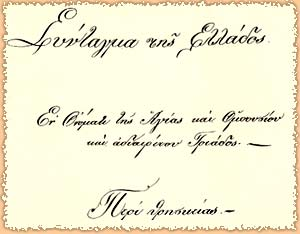 Σύνταγμα της Ελλάδος.
Εν Ονόματι της Αγίας και Ομοουσίου
και αδιαιρέτου Τριάδος. —
Περί θρησκείας. —